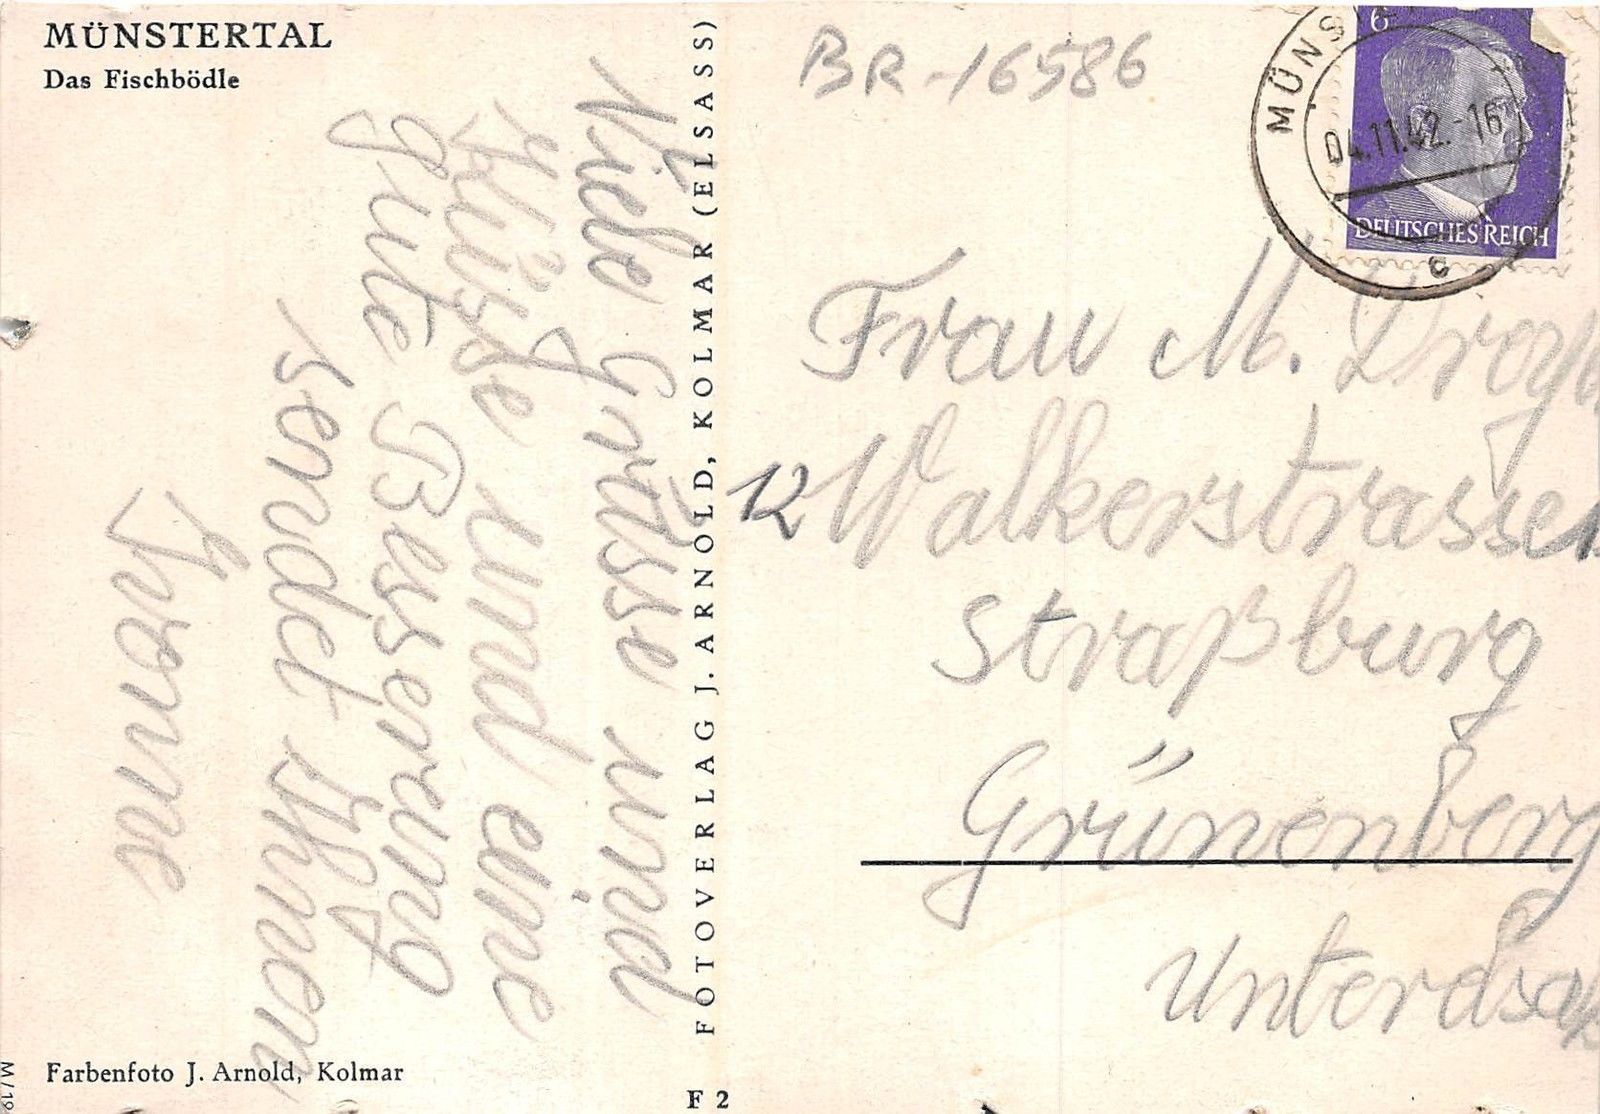 MÜNSTERTAL
Das Fischbödle
Viele Grüsse und
Küsse und eine
gute Besserung
sendet Ihnen
Yvonne
Farbenfoto J. Arnold, Kolmar
FOTOVERLAG J. ARNOLD, KOLMAR (ELSASS)
F 2
BR-16586
6
MÜNS
04.11.42.-16
c
DEUTSCHES REICH
Frau M.
12 Walkerstrasse
Straßburg
Grünenberg
Unterelsaß
M/19